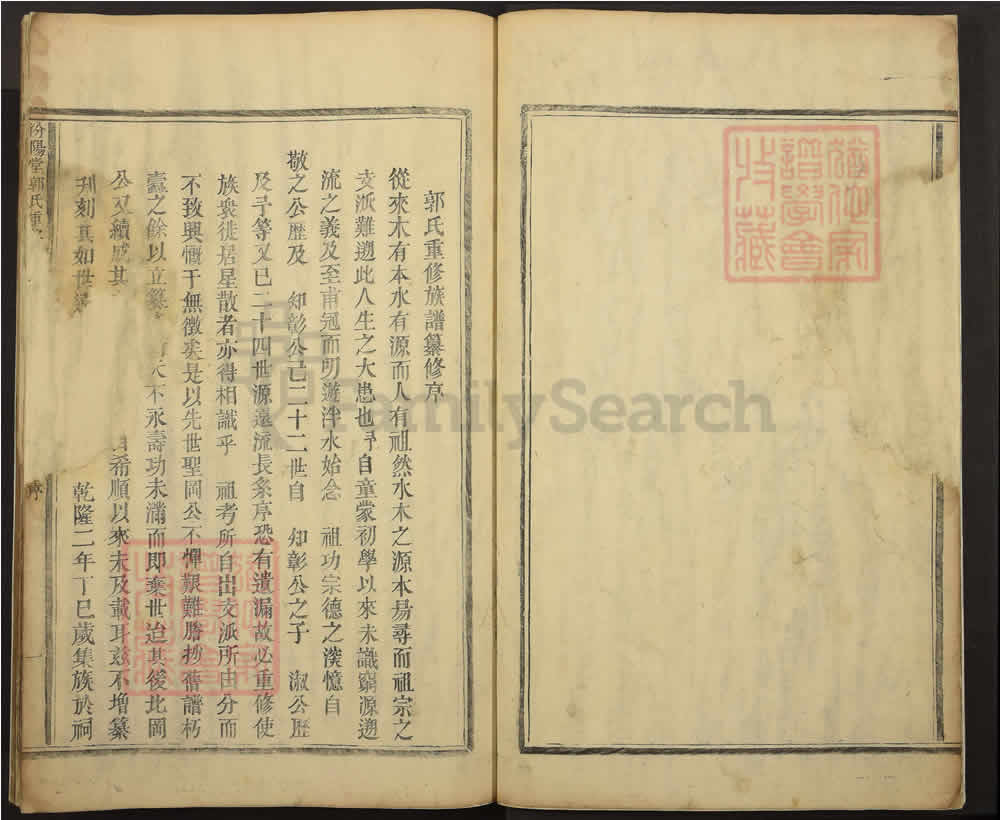 郭氏重修族譜纂修序
從來木有本水有源而人有祖然水木之源本易尋而祖宗之
支派難遡此人生之大患也予自童蒙初學以來未識窮源遡
流之義及至甫冠而叨遊泮水始念 祖功宗德之深憶自
敬之公歷及 知彰公已二十二世自 知彰公之子 淑公歷
及予等又已二十四世源遠流長条序恐有遺漏故必重修使
族衆徙居星散者亦得相識乎 祖考所自出支派所由分而
不致興慨于無徵矣是以先世聖岡公不憚艱難謄抄舊譜朽
蠹之餘以立纂 天不永壽功未滿而即棄世迨其後北岡
公又續成其 希順以來未及載耳兹不增纂
刊刻其如世 乾隆二年丁巳歲集族於祠
汾陽堂郭氏重
序
FamilySearch